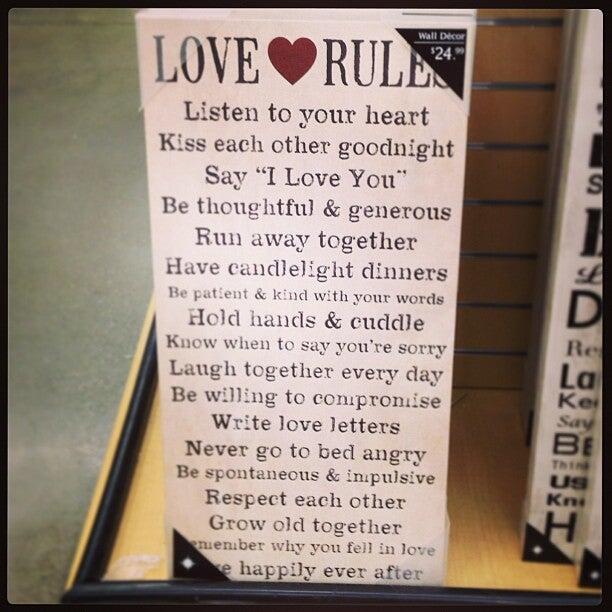 LOVE RULES
Wall Décor
$24.99
Listen to your heart
Kiss each other goodnight
Say “I Love You”
Be thoughtful & generous
Run away together
Have candlelight dinners
Be patient & kind with your words
Hold hands & cuddle
Know when to say you're sorry
Laugh together every day
Be willing to compromise
Write love letters
Never go to bed angry
Be spontaneous & impulsive
Respect each other
Grow old together
emember why you fell in love
e happily ever after